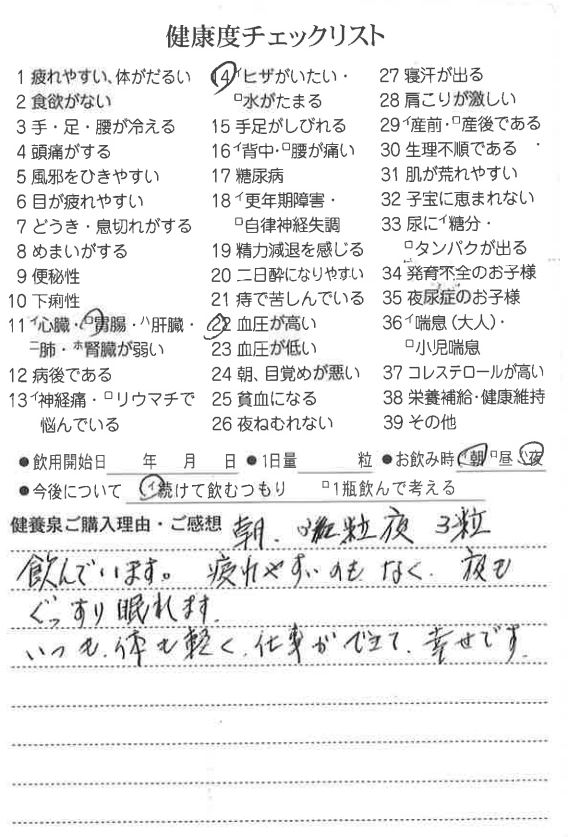 健康度チェックリスト
1 疲れやすい、体がだるい
2 食欲がない
3 手・足・腰が冷える
4 頭痛がする
5 風邪をひきやすい
6 目が疲れやすい
7 どうき・息切れがする
8 めまいがする
9 便秘性
10 下痢性
11 ィ心臓・ロ胃腸・ハ肝臓・
ニ肺・ホ腎臓が弱い
12 病後である
13 ィ神経痛・ロリウマチで
悩んでいる
14 ィヒザがいたい・
ロ水がたまる
15 手足がしびれる
16 ィ背中・ロ腰が痛い
17 糖尿病
18 ィ更年期障害・
ロ自律神経失調
19 精力減退を感じる
20 二日酔になりやすい
21 痔で苦しんでいる
22 血圧が高い
23 血圧が低い
24 朝、目覚めが悪い
25 貧血になる
26 夜ねむれない
27 寝汗が出る
28 肩こりが激しい
29 ィ産前・ロ産後である
30 生理不順である
31 肌が荒れやすい
32 子宝に恵まれない
33 尿にィ糖分・
ロタンパクが出る
34 発育不全のお子様
35 夜尿症のお子様
36 ィ喘息(大人)・
ロ小児喘息
37 コレステロールが高い
38 栄養補給・健康維持
39 その他
●飲用開始日 年 月 日 ●1日量 粒 ●お飲み時 ィ朝 ロ昼 ハ夜
●今後について ィ続けて飲むつもり ロ1瓶飲んで考える
健養泉ご購入理由・ご感想 朝、3粒夜3粒
飲んでいます。疲れやすいのもなく、夜も
ぐっすり眠れます。
いつも、体も軽く、仕事ができて、幸せです。